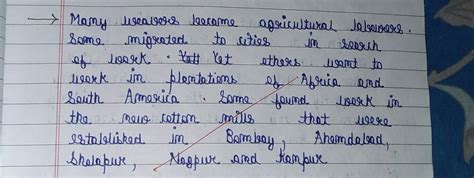 → Many weavers became agricultural labourers.
Some migrated to cities in search
of work. Yet others went to
work in plantations of Africa and
South America. Some found work in
the new cotton mills that were
established in Bombay, Ahemdabad,
Sholapur, Nagpur and Kanpur